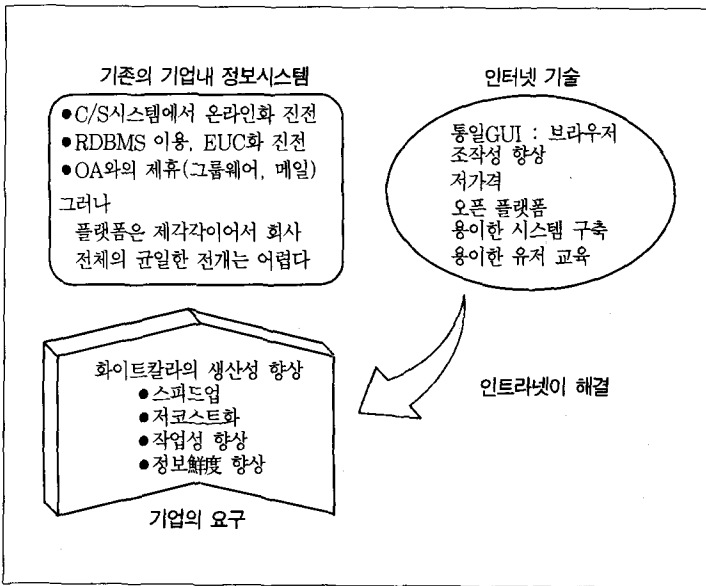 기존의 기업내 정보시스템
●C/S시스템에서 온라인화 진전
●RDBMS 이용, EUC화 진전
●OA와의 제휴(그룹웨어, 메일)
그러나
플랫폼은 제각각이어서 회사
전체의 균일한 전개는 어렵다
인터넷 기술
통일GUI : 브라우저
조작성 향상
저가격
오픈 플랫폼
용이한 시스템 구축
용이한 유저 교육
화이트칼라의 생산성 향상
●스피드업
●저코스트화
●작업성 향상
●정보鮮度 향상
기업의 요구
인트라넷이 해결